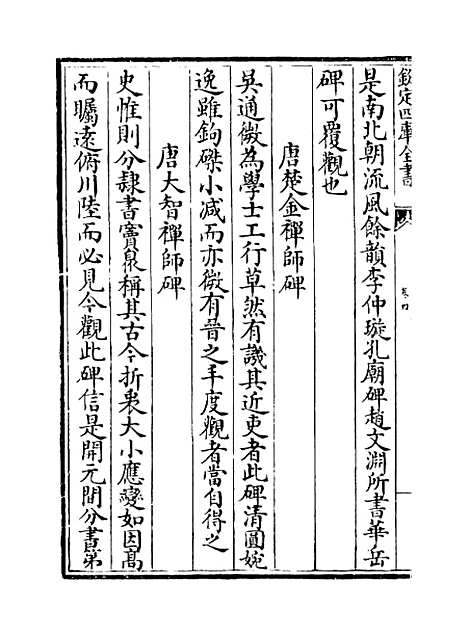 欽定四庫全書
卷四
是南北朝流風餘韻李仲璇孔廟碑趙文淵所書華岳
碑可覆觀也
唐楚金禪師碑
吳通微為學士工行草然有譏其近吏者此碑清圓婉
逸雖鉤磔小減而亦微有晉之丰度觀者當自得之
唐大智禪師碑
史惟則分隸書竇臮稱其古今折衷大小應變如因高
而矚遠俯川陸而必見今觀此碑信是開元間分書第